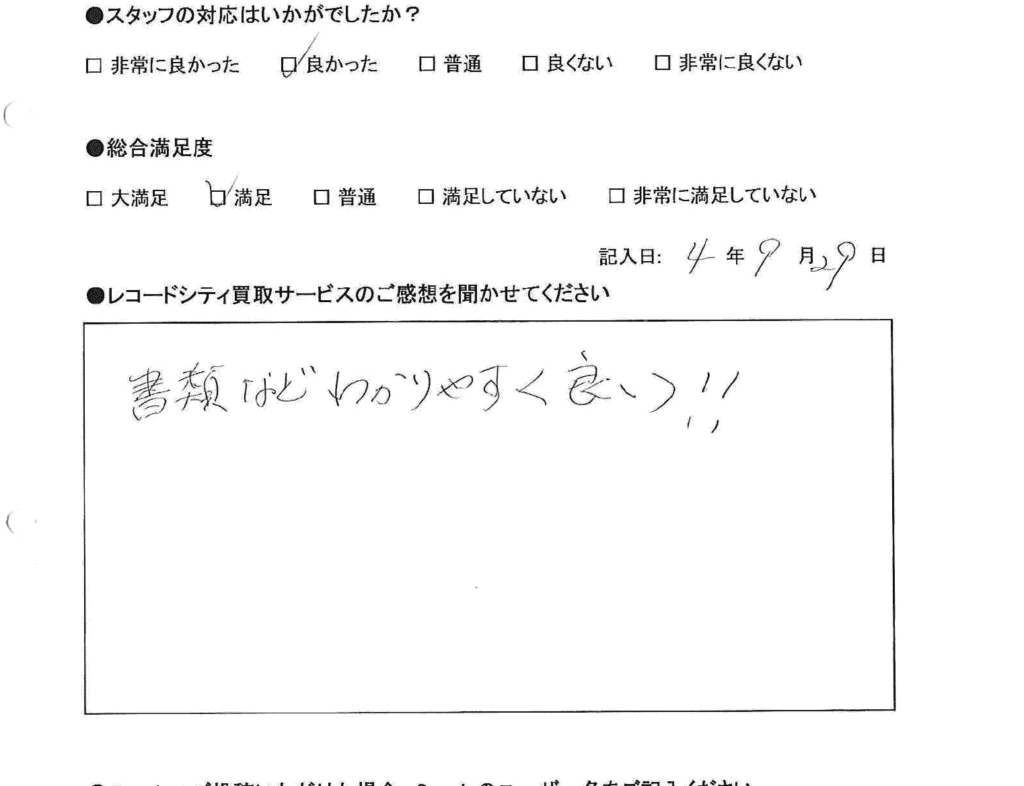 ●スタッフの対応はいかがでしたか？
□ 非常に良かった ☑ 良かった □ 普通 □ 良くない □ 非常に良くない
●総合満足度
□ 大満足 ☑ 満足 □ 普通 □ 満足していない □ 非常に満足していない
記入日: 4 年 9 月 29 日
●レコードシティ買取サービスのご感想を聞かせてください
書類などわかりやすく良い!!